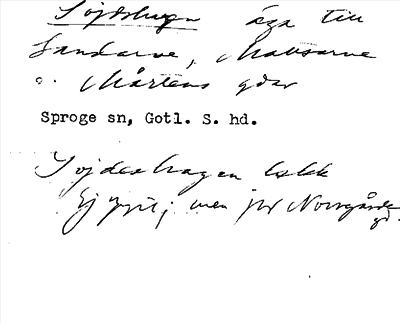 Sojdshagn äga till
Sandarve, Mattsarve
o. Mårtens gdar
Sproge sn, Gotl. S. hd.
Sojdeshagen Eskk
Ej syn; men jfr Norrgårde
gd.